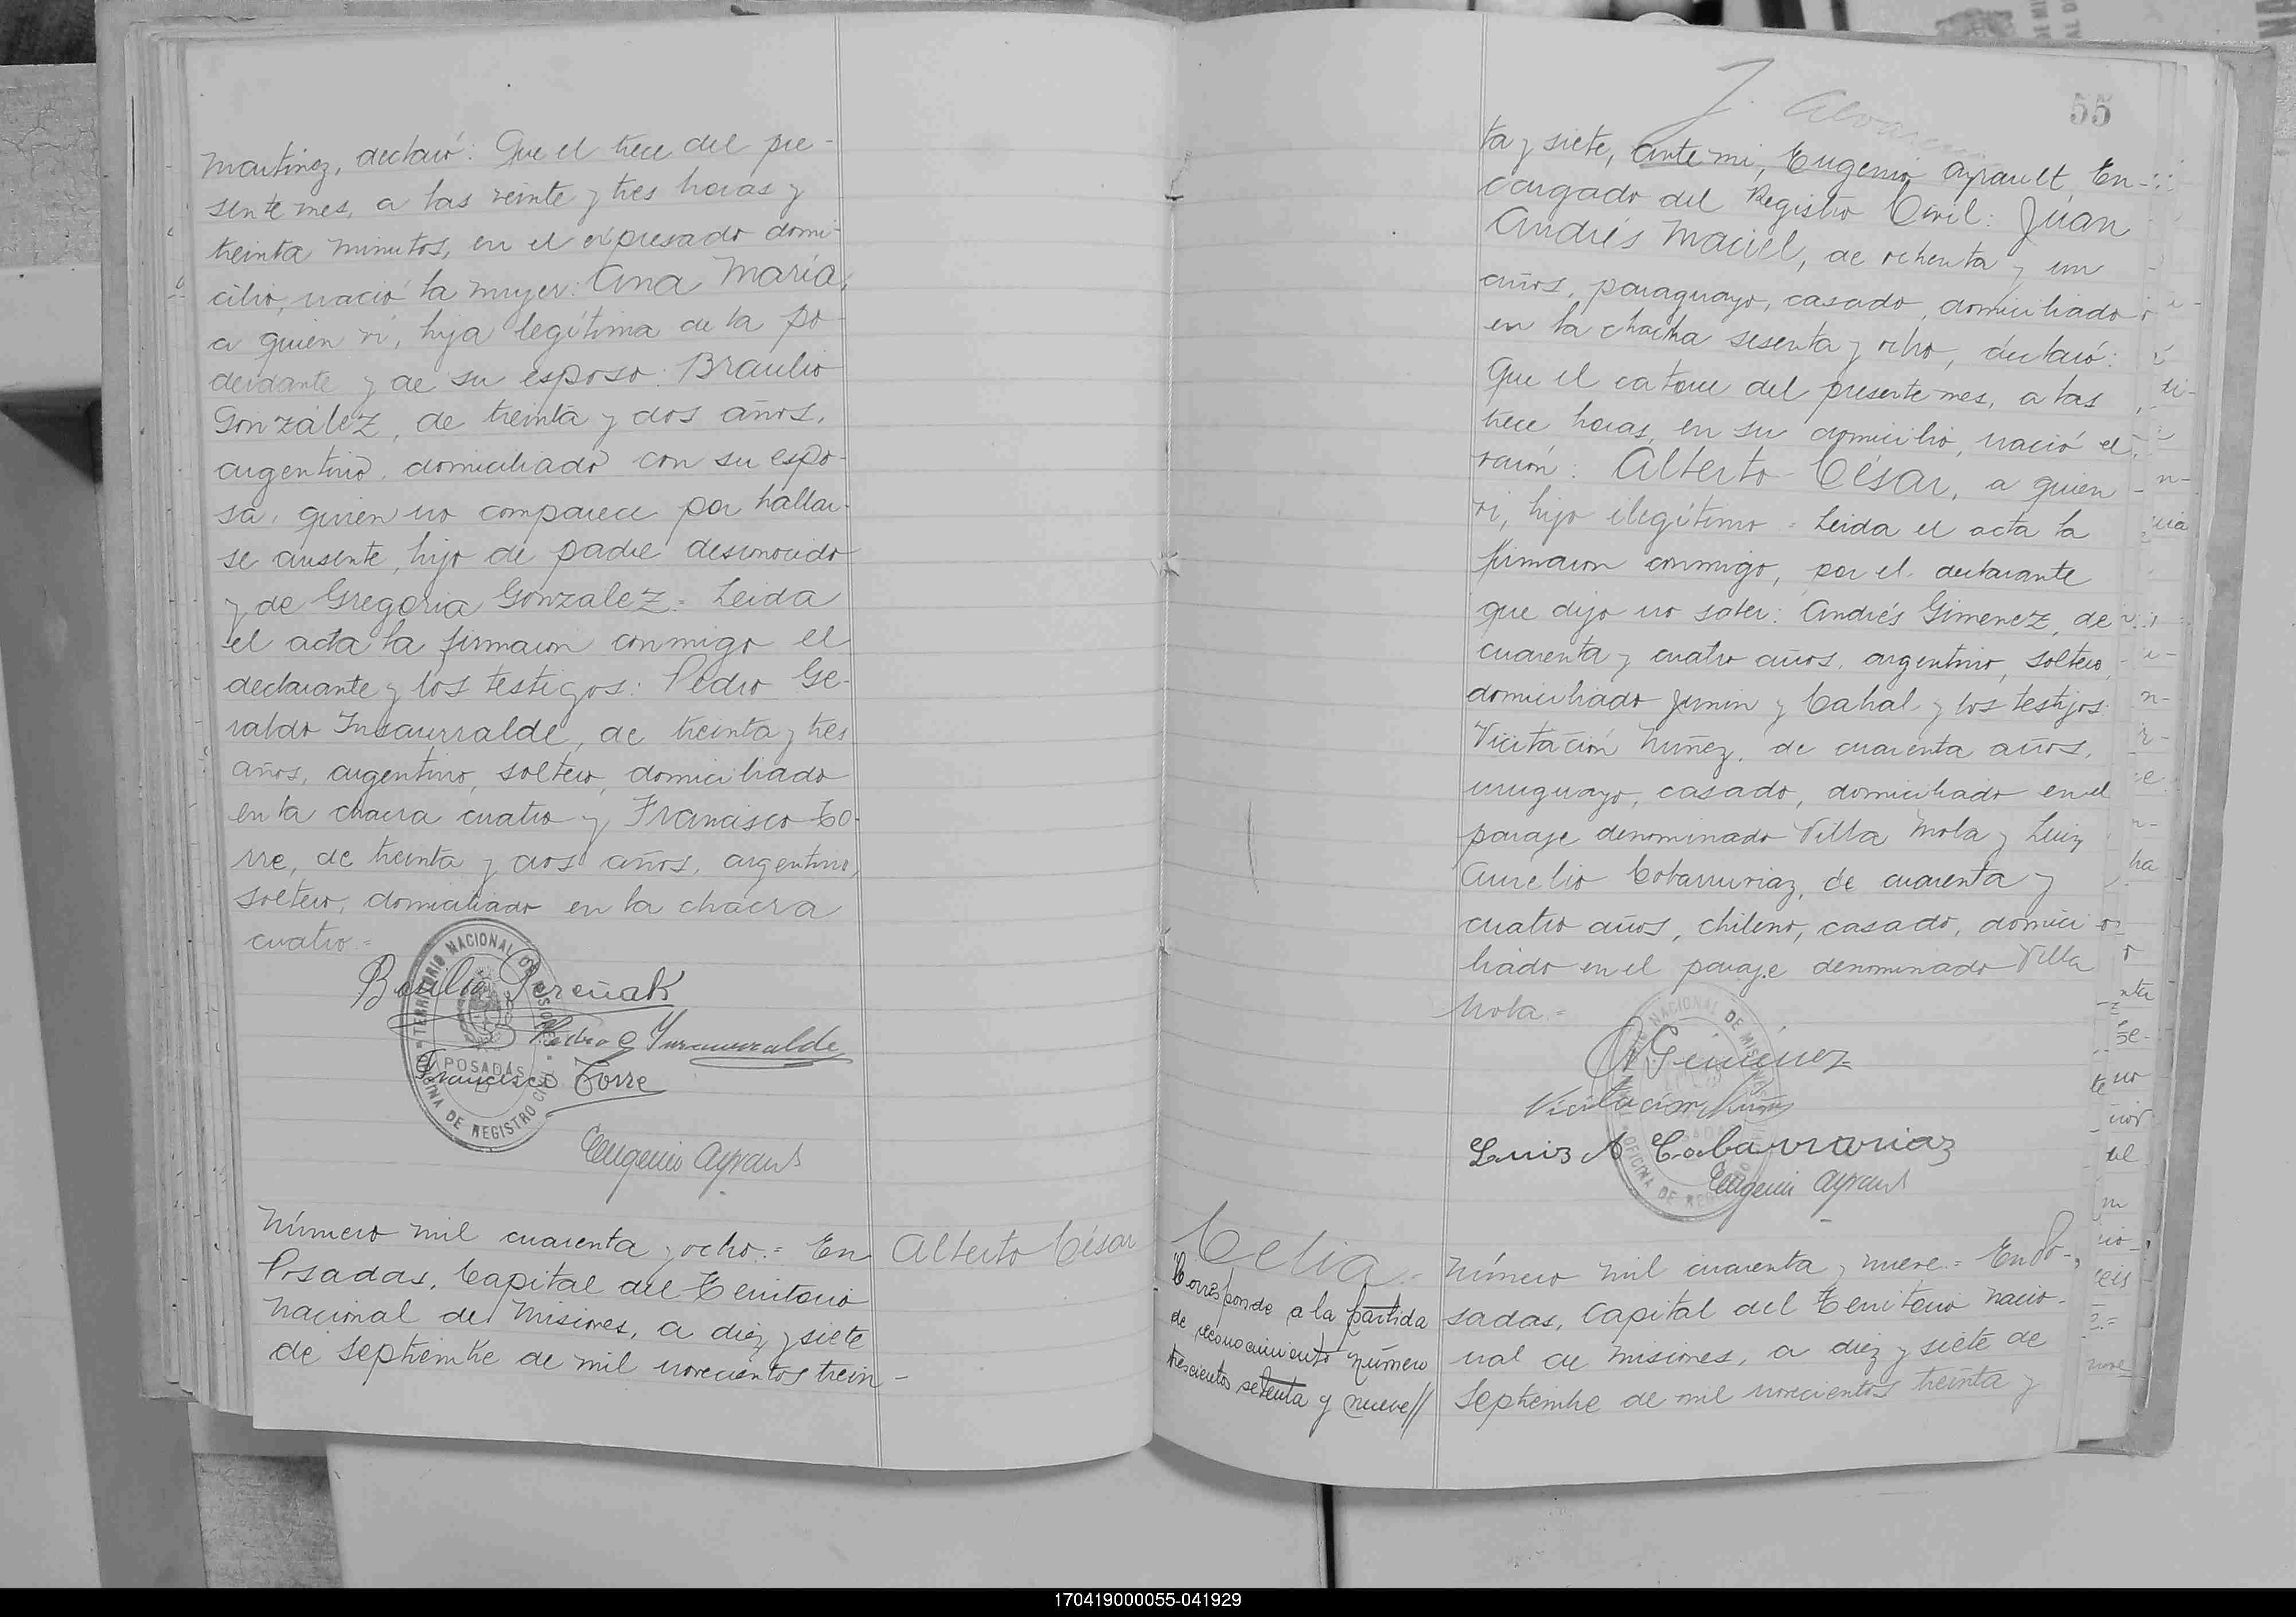 Martinez, declaró: Que el trece del pre-
sente mes, a las veinte y tres horas y
treinta minutos, en el expresado domi-
cilio, nació la mujer: Ana María,
a quien ví, hija legítima de la po-
derdante y de su esposo: Braulio
González, de treinta y dos años,
argentino, domiciliado con su espo-
sa, quien no comparece por hallar-
se ausente, hijo de padre desconocido
y de Gregoria González.= Leida
el acta la firmaron conmigo el
declarante y los testigos: Pedro Ge-
raldo Insaurralde, de treinta y tres
años, argentino, soltero, domiciliado
en la chacra cuatro y Francisco To-
rre, de treinta y dos años, argentino,
soltero, domiciliado en la chacra
cuatro.=
Basilio Pereñak
Pedro G Insaurralde
Francisco Torre
TERRITORIO NACIONAL DE MISIONES
POSADAS
OFICINA DE REGISTRO CIVIL
Eugenio Ayrault
Número mil cuarenta y ocho.= En
Posadas, Capital del Territorio
Nacional de Misiones, a diez y siete
de Septiembre de mil novecientos trein-
Alberto César
55
J. Alvarez
ta y siete, ante mi, Eugenio Ayrault, En-
cargado del Registro Civil: Juan
Andrés Maciel, de ochenta y un
años, paraguayo, casado, domiciliado
en la chacra sesenta y ocho, declaró:
Que el catorce del presente mes, a las
trece horas, en su domicilio, nació el
varón: Alberto César, a quien
ví, hijo ilegítimo = Leida el acta la
firmaron conmigo, por el declarante
que dijo no saber: Andrés Gimenez, de
cuarenta y cuatro años, argentino, soltero,
domiciliado Junin y Cabal y los testigos:
Vicitación Nuñez, de cuarenta años,
uruguayo, casado, domiciliado en el
paraje denominado Villa Mola y Luiz
Aurelio Cobarruviaz, de cuarenta y
cuatro años, chileno, casado, domici
liado en el paraje denominado Villa
Mola.=
A Gimenez
Vicitacion Nuñez
Luiz A Cobarruviaz
Eugenio Ayrault
NACIONAL DE MISIONES
OFICINA DE REGISTRO
Celia.=
Corresponde a la partida
de reconocimiento número
trescientos setenta y nueve//
Número mil cuarenta y nueve.= En Po-
sadas, Capital del Territorio Nacio-
nal de Misiones, a diez y siete de
Septiembre de mil novecientos treinta y
170419000055-041929